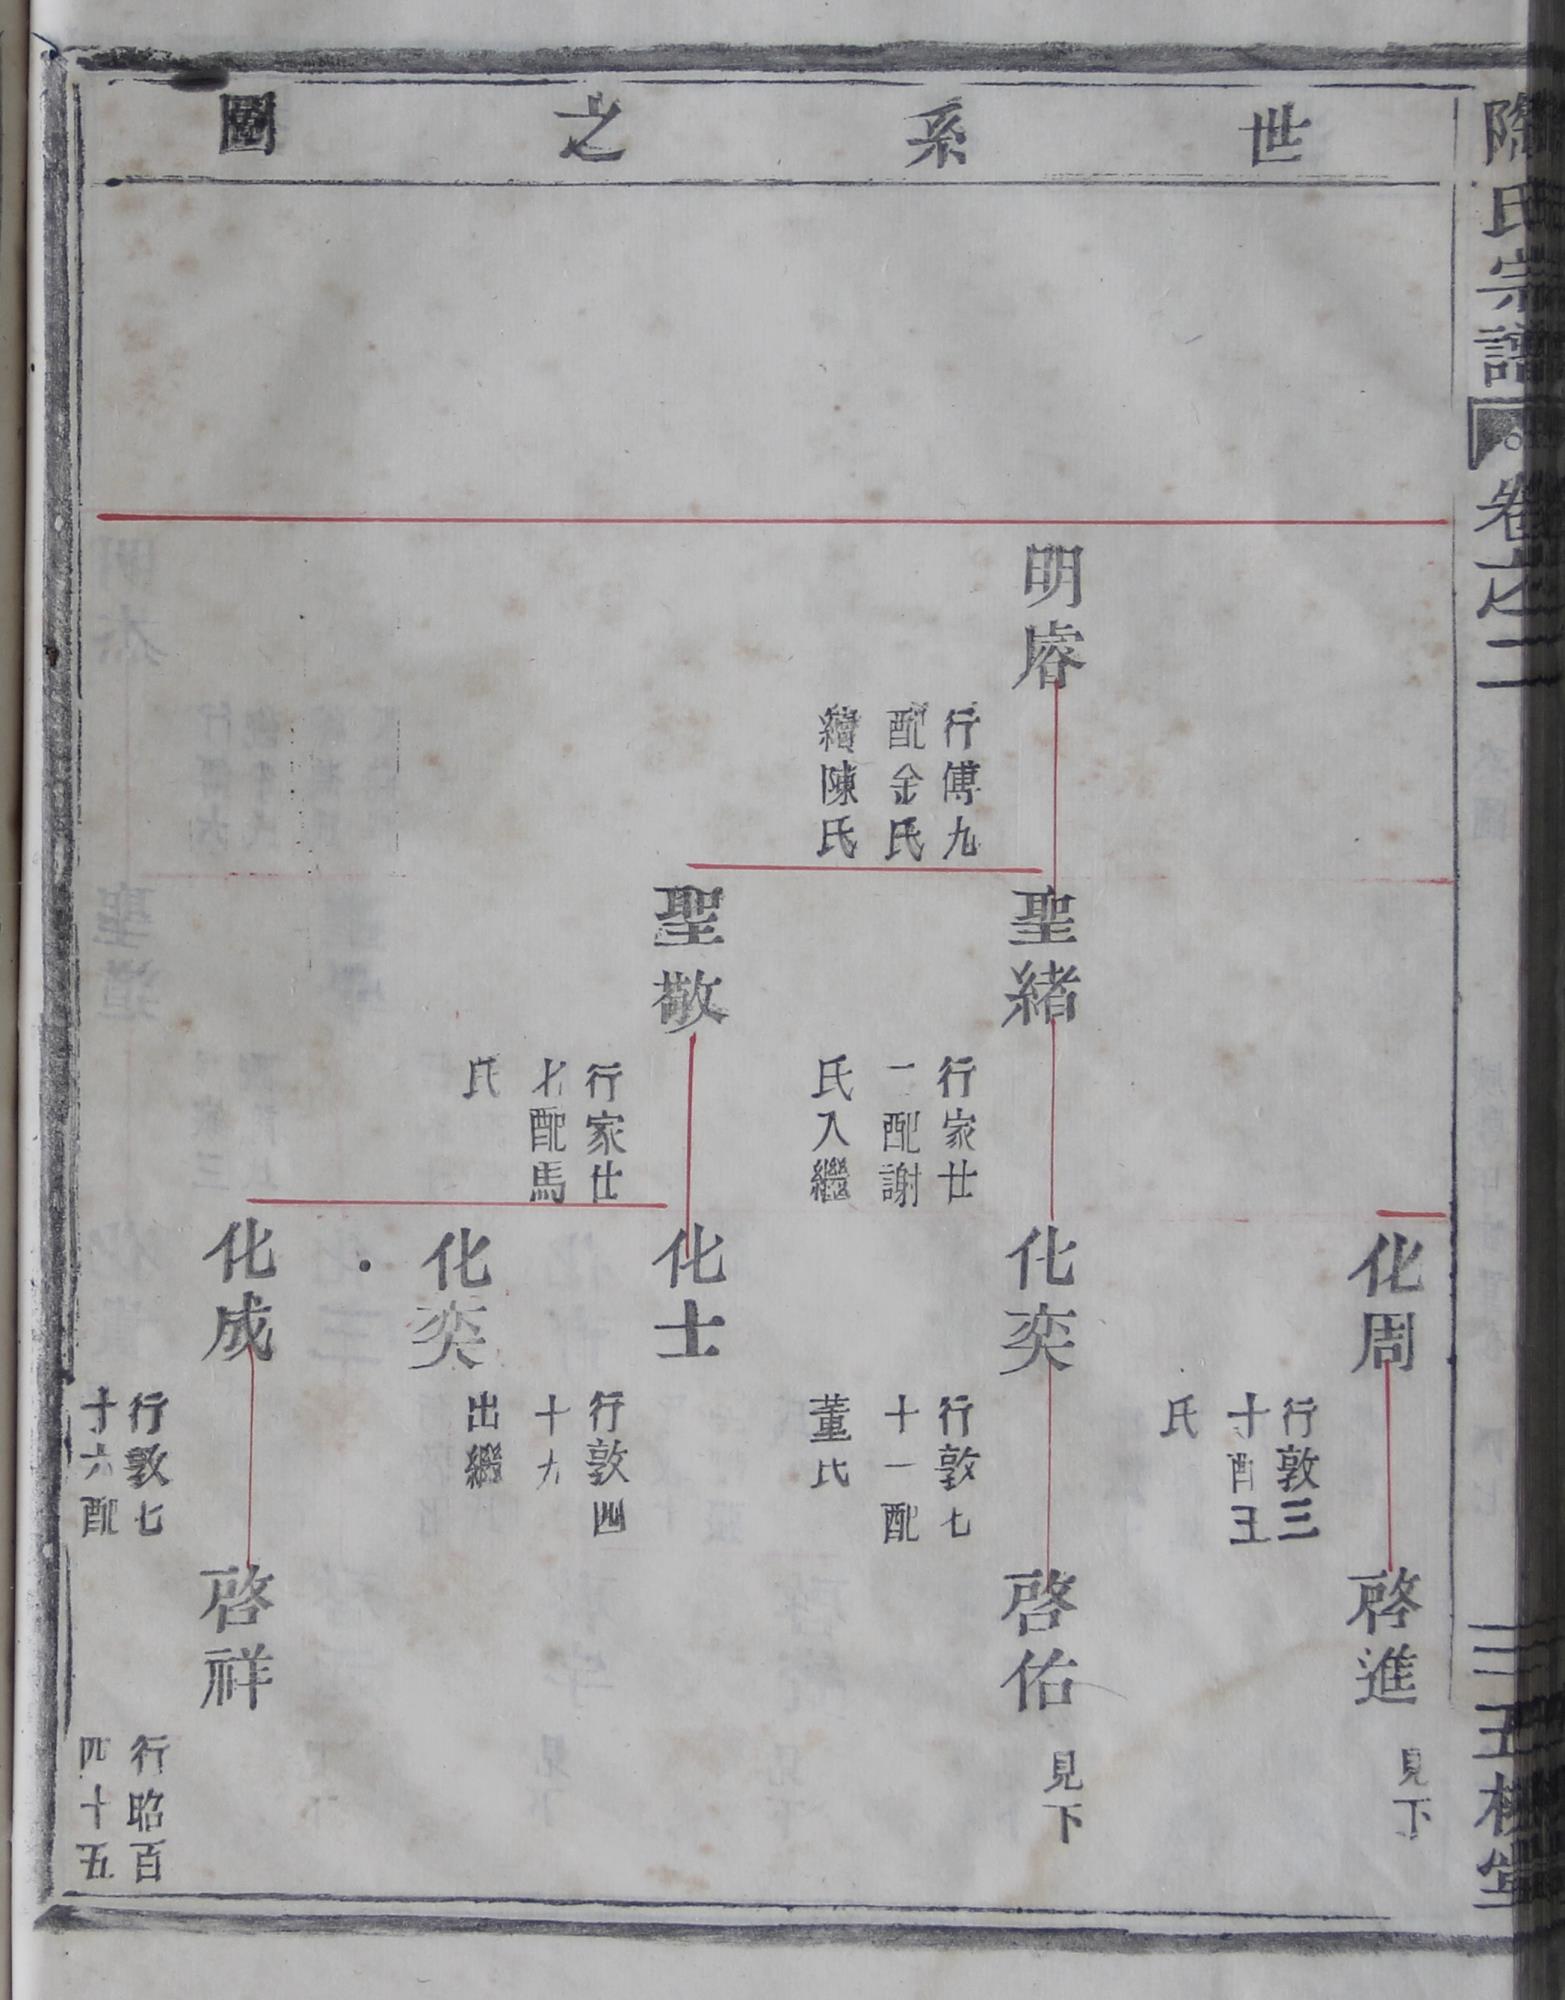 陶氏宗譜 卷之二 五柳堂
世系之圖
明睿
行傳九
配金氏
續陳氏
聖緒
行家廿
一配謝
氏入繼
聖敬
行家廿
九配馬
氏
化周
行敦三
十配王
氏
化奕
行敦七
十一配
董氏
化士
行敦四
十九
化奕
出繼
化成
行敦七
十六配
啓進
見下
啓佑
見下
啓祥
行昭百
四十五